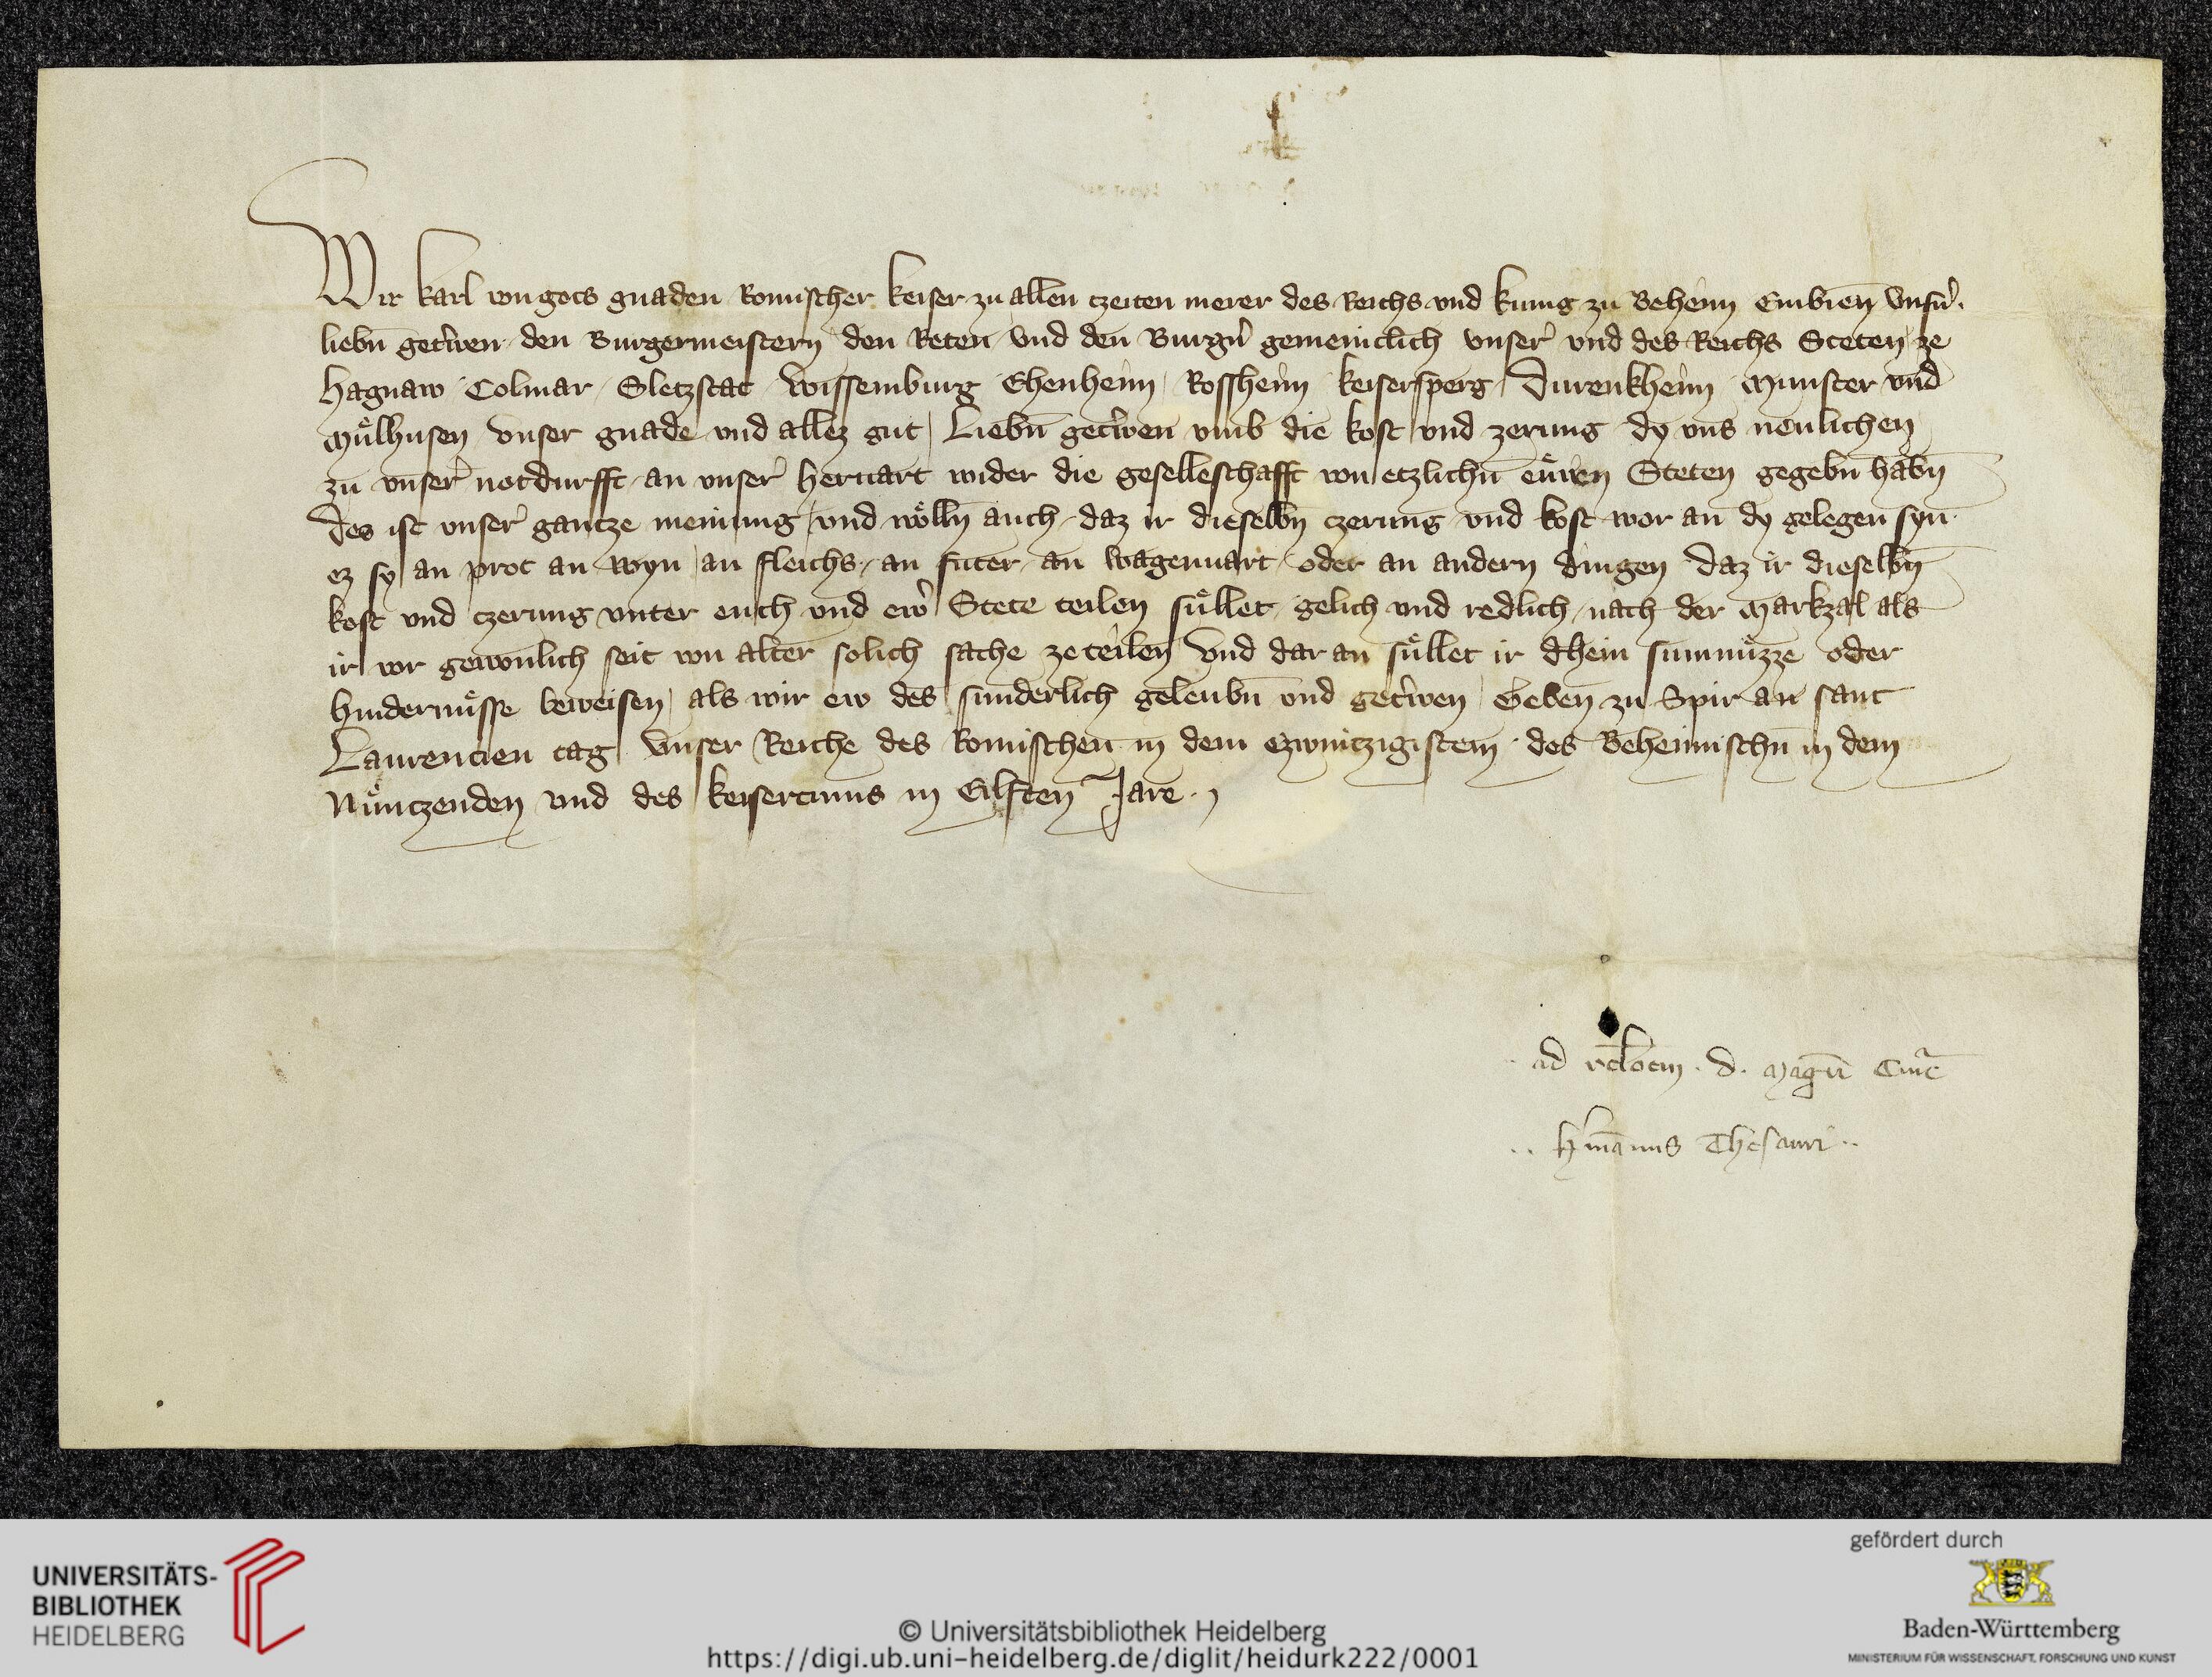 Wir karl von gots gnaden Romischer keiser zu allen czeiten merer des Reichs vnd kunig zu Beheim Embieten vnsern
liebn̄ getrewen den Burgermeistern den Reten vnd den Burgern gemeinclich vnser vnd des Reichs Steten ze
hagnaw Colmar Sletzstat Wissemburg Ehenheim Rossheim keisersperg Durenkheim Munster vnd
Mülhusen vnser gnade vnd allez gut Liebn̄ getrewen vmb die kost vnd zerung dy vns neulichen
zu vnser notdurfft an vnser heruart wider die geselleschafft von etzlichn̄ eüren Steten gegebn̄ habn̄
des ist vnser gantze meinung vnd wölln̄ auch daz ir dieselbn̄ czerung vnd kost wor an dy gelegen syn
ez sy an prot an wyn an fleichs an futer an wagenuart oder an andern dingen daz ir dieselbn̄
kost vnd czerung vnter euch vnd ewer Stete teilen süllet gelich vnd redlich nach der Markzal als
ir vor gewonlich seit von alter solich sache ze teilen vnd dar an süllet ir dhein sumnüzze oder
hindernüsse beweisen als wir ew des sunderlich geleubn̄ vnd getrwen Geben zu Spir an sant
Laurencien tag vnser Reiche des Romischen in dem czwenczigistem des Behemischn̄ in dem
Nünczenden vnd des keisertums in Eilften Jare
ad relacem . d . Magri Curie
.. hmanus Thesaurar ..
UNIVERSITÄTS-
BIBLIOTHEK
HEIDELBERG
© Universitätsbibliothek Heidelberg
https://digi.ub.uni-heidelberg.de/diglit/heidurk222/0001
gefördert durch
Baden-Württemberg
MINISTERIUM FÜR WISSENSCHAFT, FORSCHUNG UND KUNST